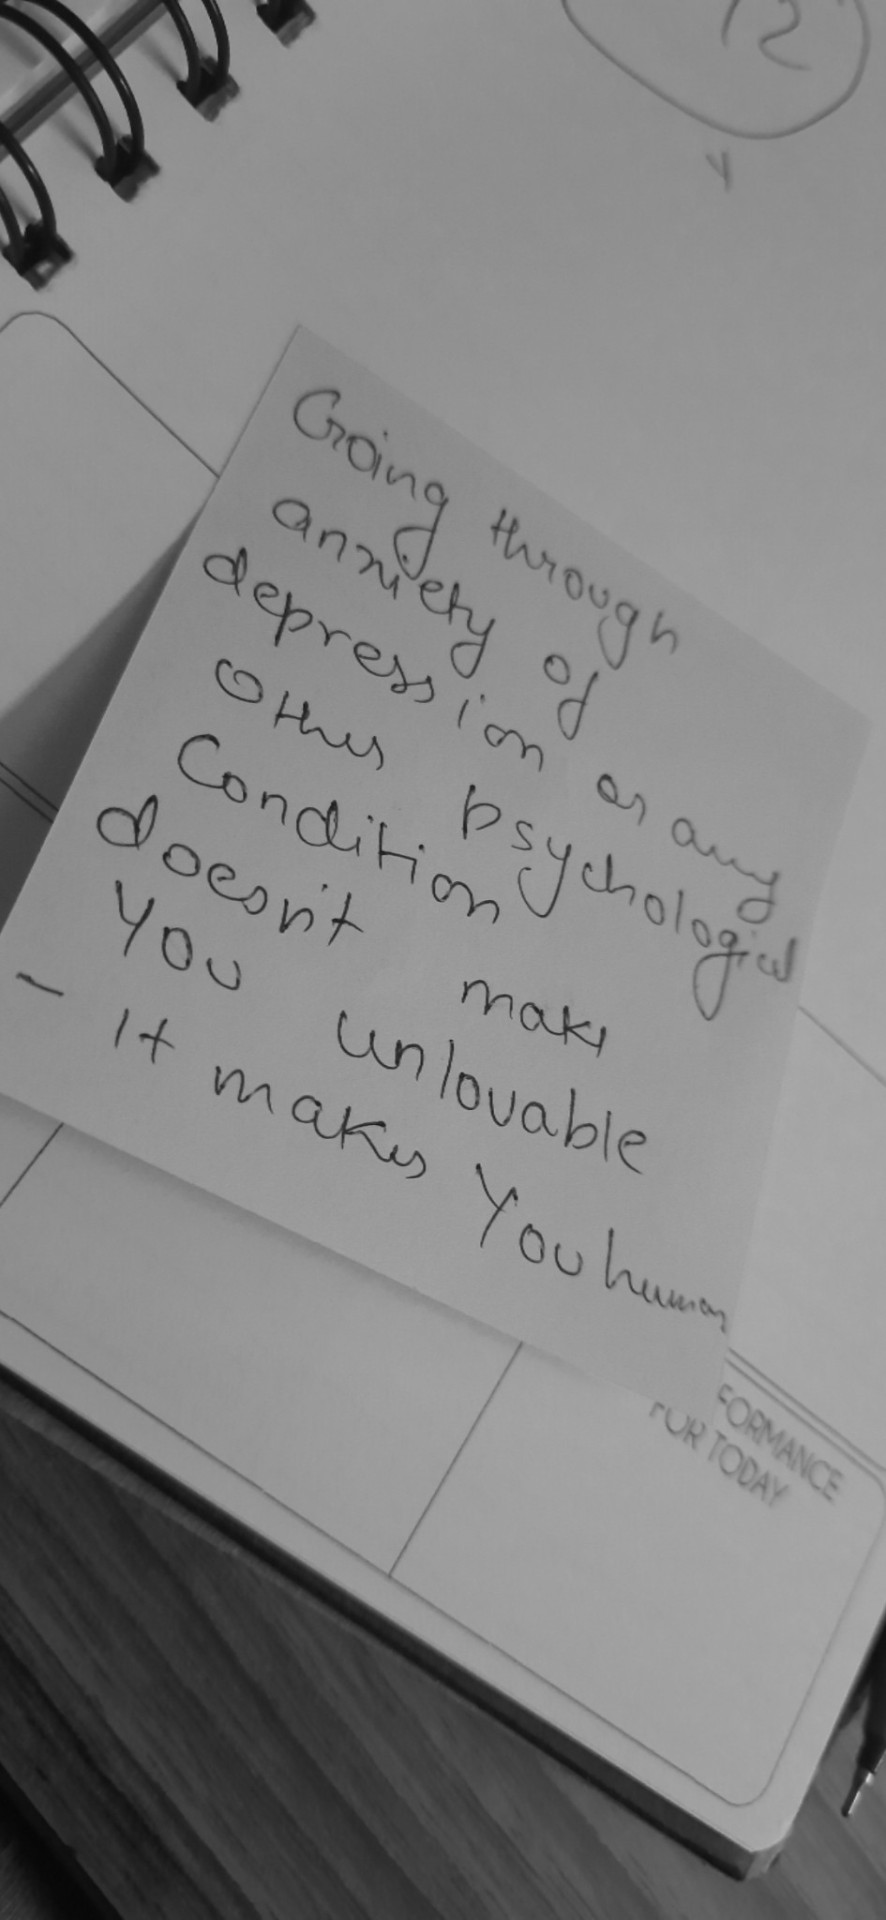 12
Going through
anxiety of
depression or any
other psychological
Condition
doesn't make
You unlovable
- It makes You human
FORMANCE
FOR TODAY